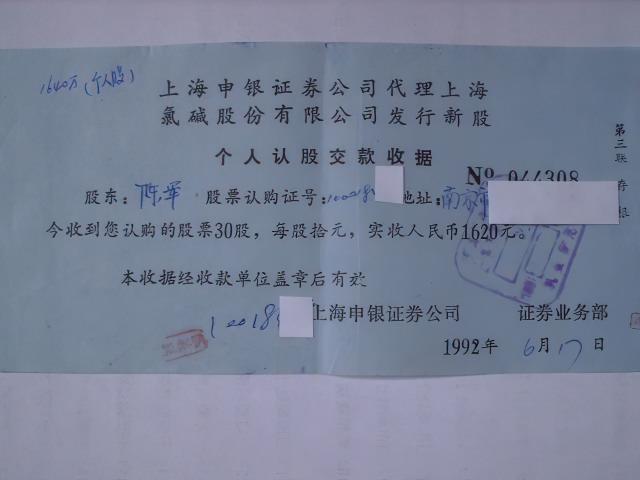 1640万(个人股)
上海申银证券公司代理上海
氯碱股份有限公司发行新股
个人认股交款收据
№ 044308
第三联 存根
股东: 陈军 股票认购证号: 100018 地址: 南京
今收到您认购的股票30股,每股拾元,实收人民币1620元。
本收据经收款单位盖章后有效
10018 上海申银证券公司 证券业务部
1992年 6月17日